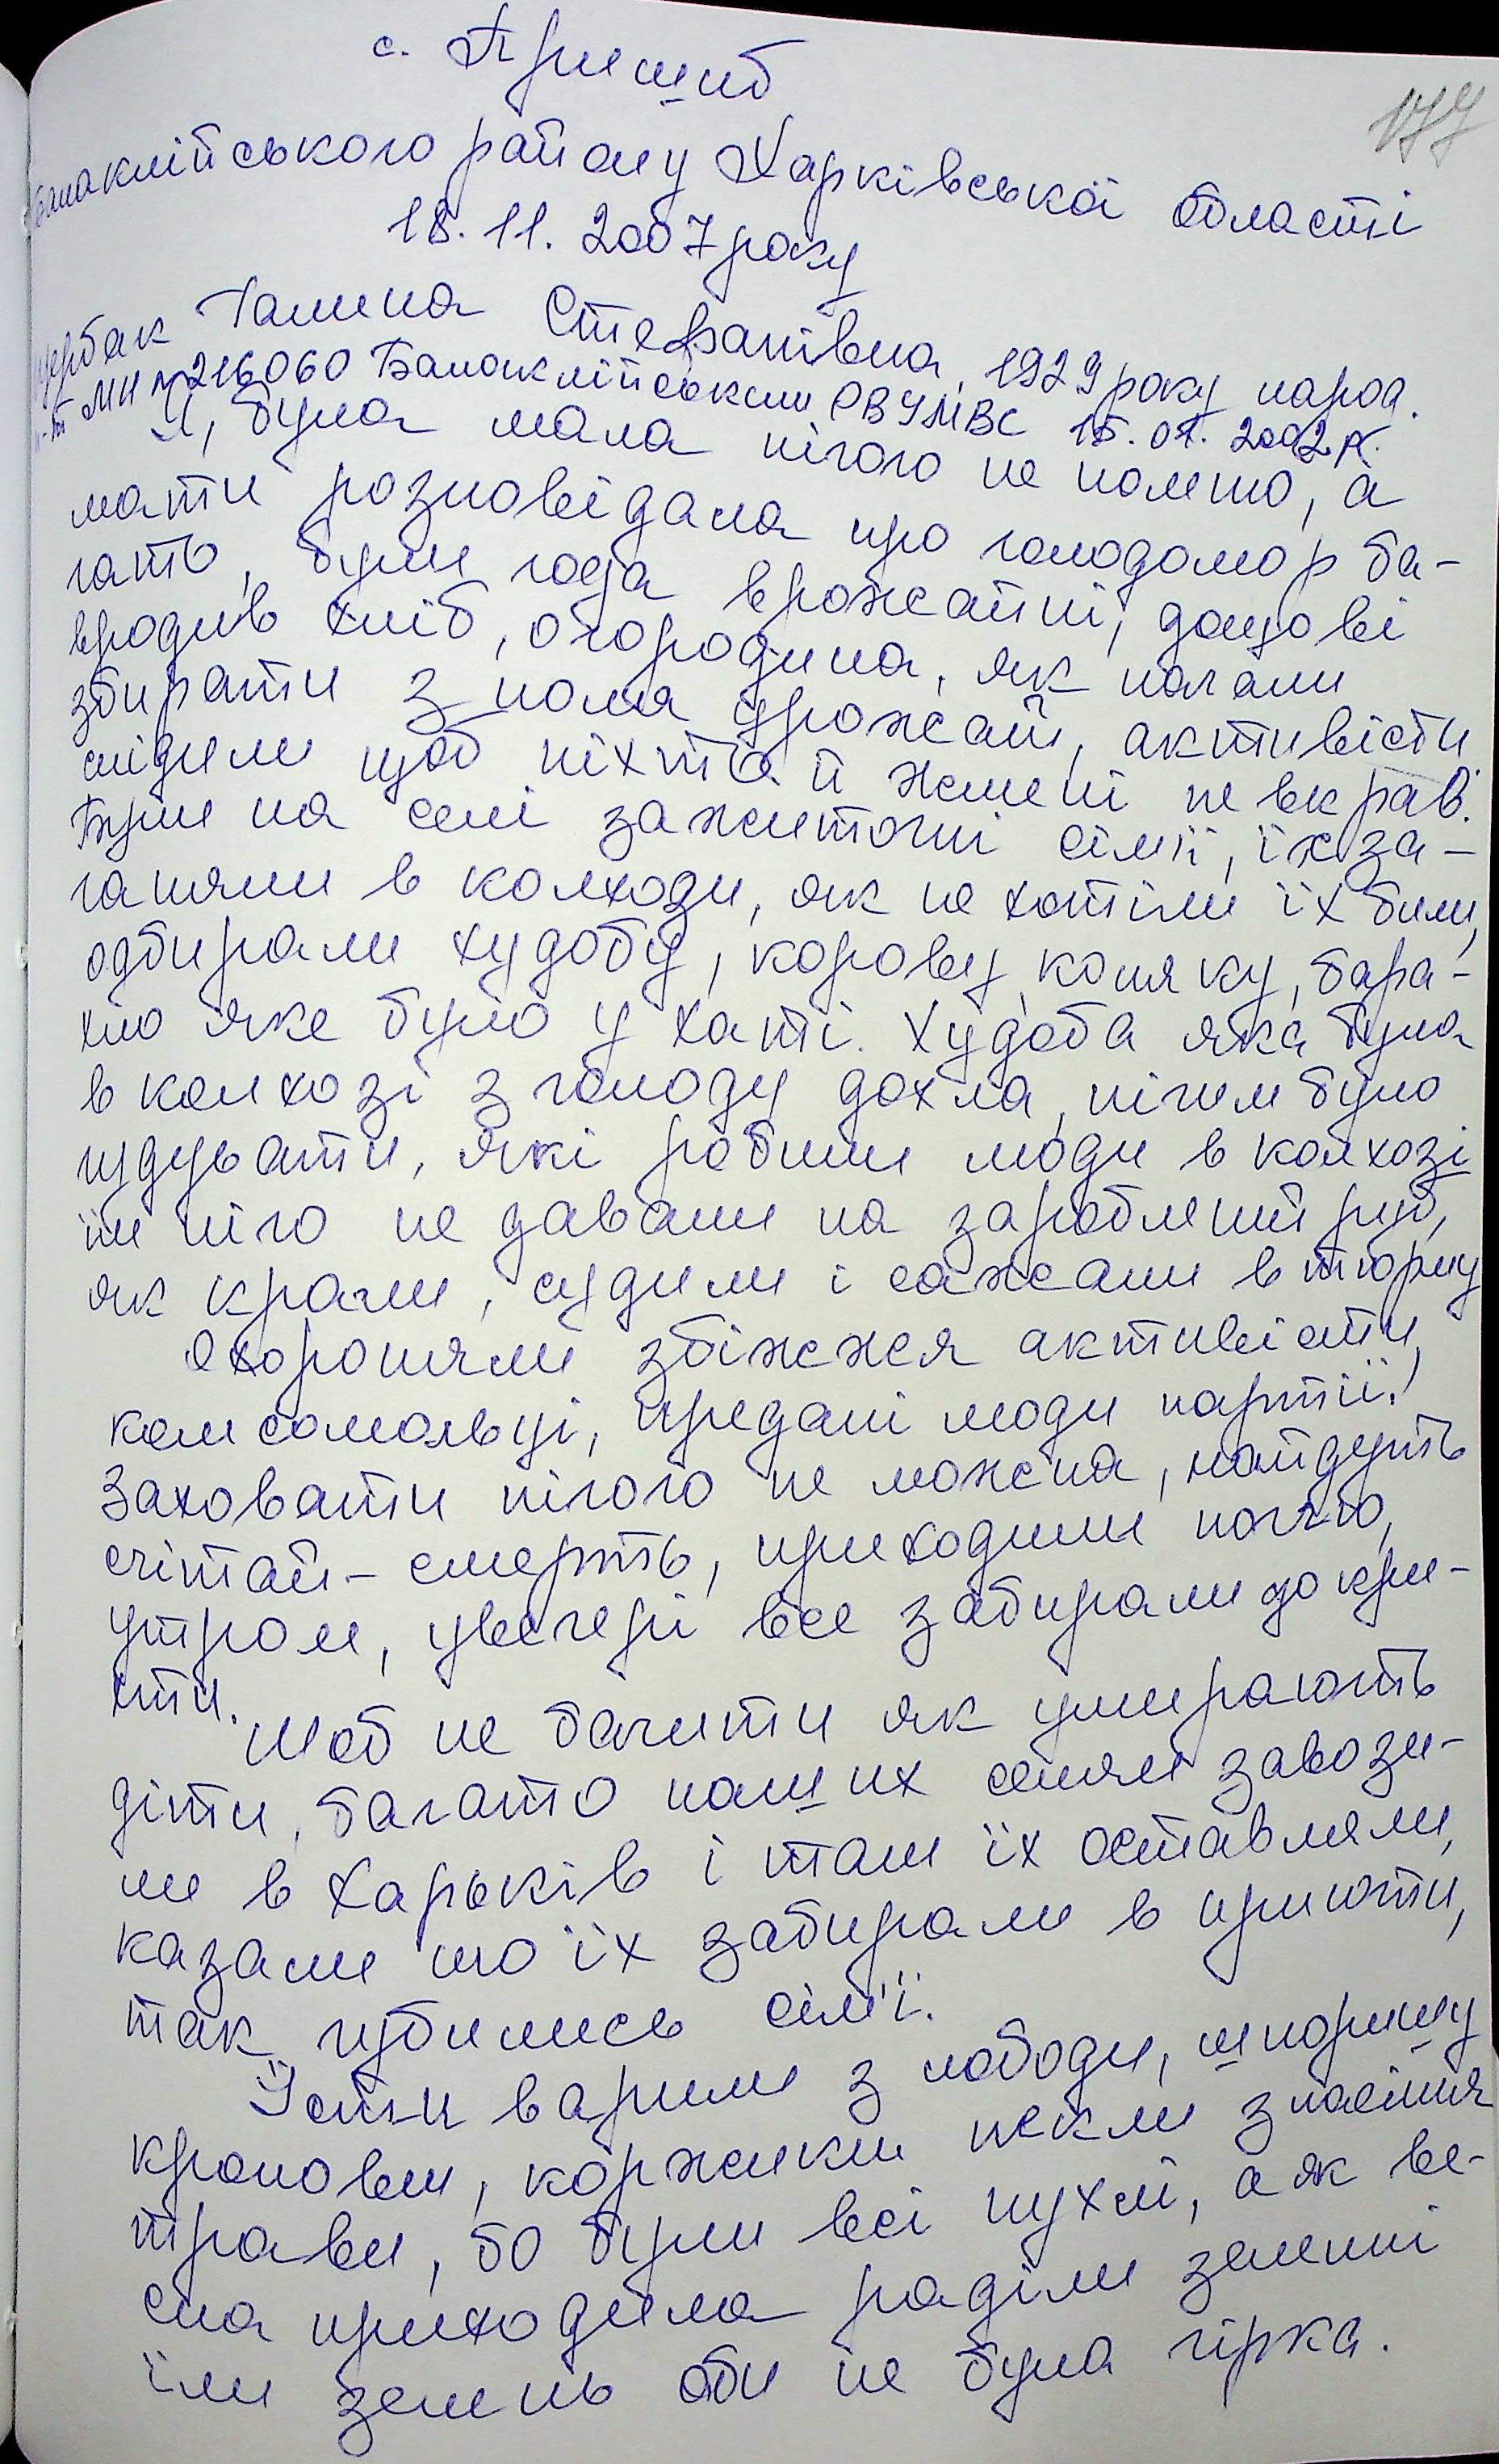 с. Пришиб
177
Балаклійського району Харківської області
18.11.2007 року
Щербак Галина Степанівна, 1929 року народ.
п-т МН № 216060 Балаклійським РВУМВС 15.01.2002 р.
Я, була мала нічого не помню, а
мати розповідала про голодомор ба-
гато, були года врожайні, дощові
вродив хліб, огородина, як почали
збирати з поля урожай, активісти
слідили щоб ніхто й жмені не вкрав.
Були на селі зажиточні сімії, їх за-
ганяли в колхози, як не хотіли їх били,
одбирали худобу, корову, коняку, бара-
хло яке було у хаті. Худоба яка була
в колхозі з голоду дохла, нічим було
щдувати, які робили люди в колхозі
їм нічо не давали на зароблений руб,
як крали, судили і сажали в тюрму
Охороняли збіжжя активісти,
комсомольці, предані люди партії!
Заховати нічого не можна, найдуть
считай – смерть, приходили ноччю,
утром, увечері все забирали до кри-
хти.
Шоб не бачити як умирають
діти, багато наших селян завози-
ли в Харьків і там їх оставляли,
казали шо їх забирали в приюти,
так губились сімʼї.
Їсти варили з лободи, шпоришу
кропови, коржики пекли з насіння
трави, бо були всі пухлі, а як ве-
сна приходила раділи зеленні
їли зелень аби не була гірка.